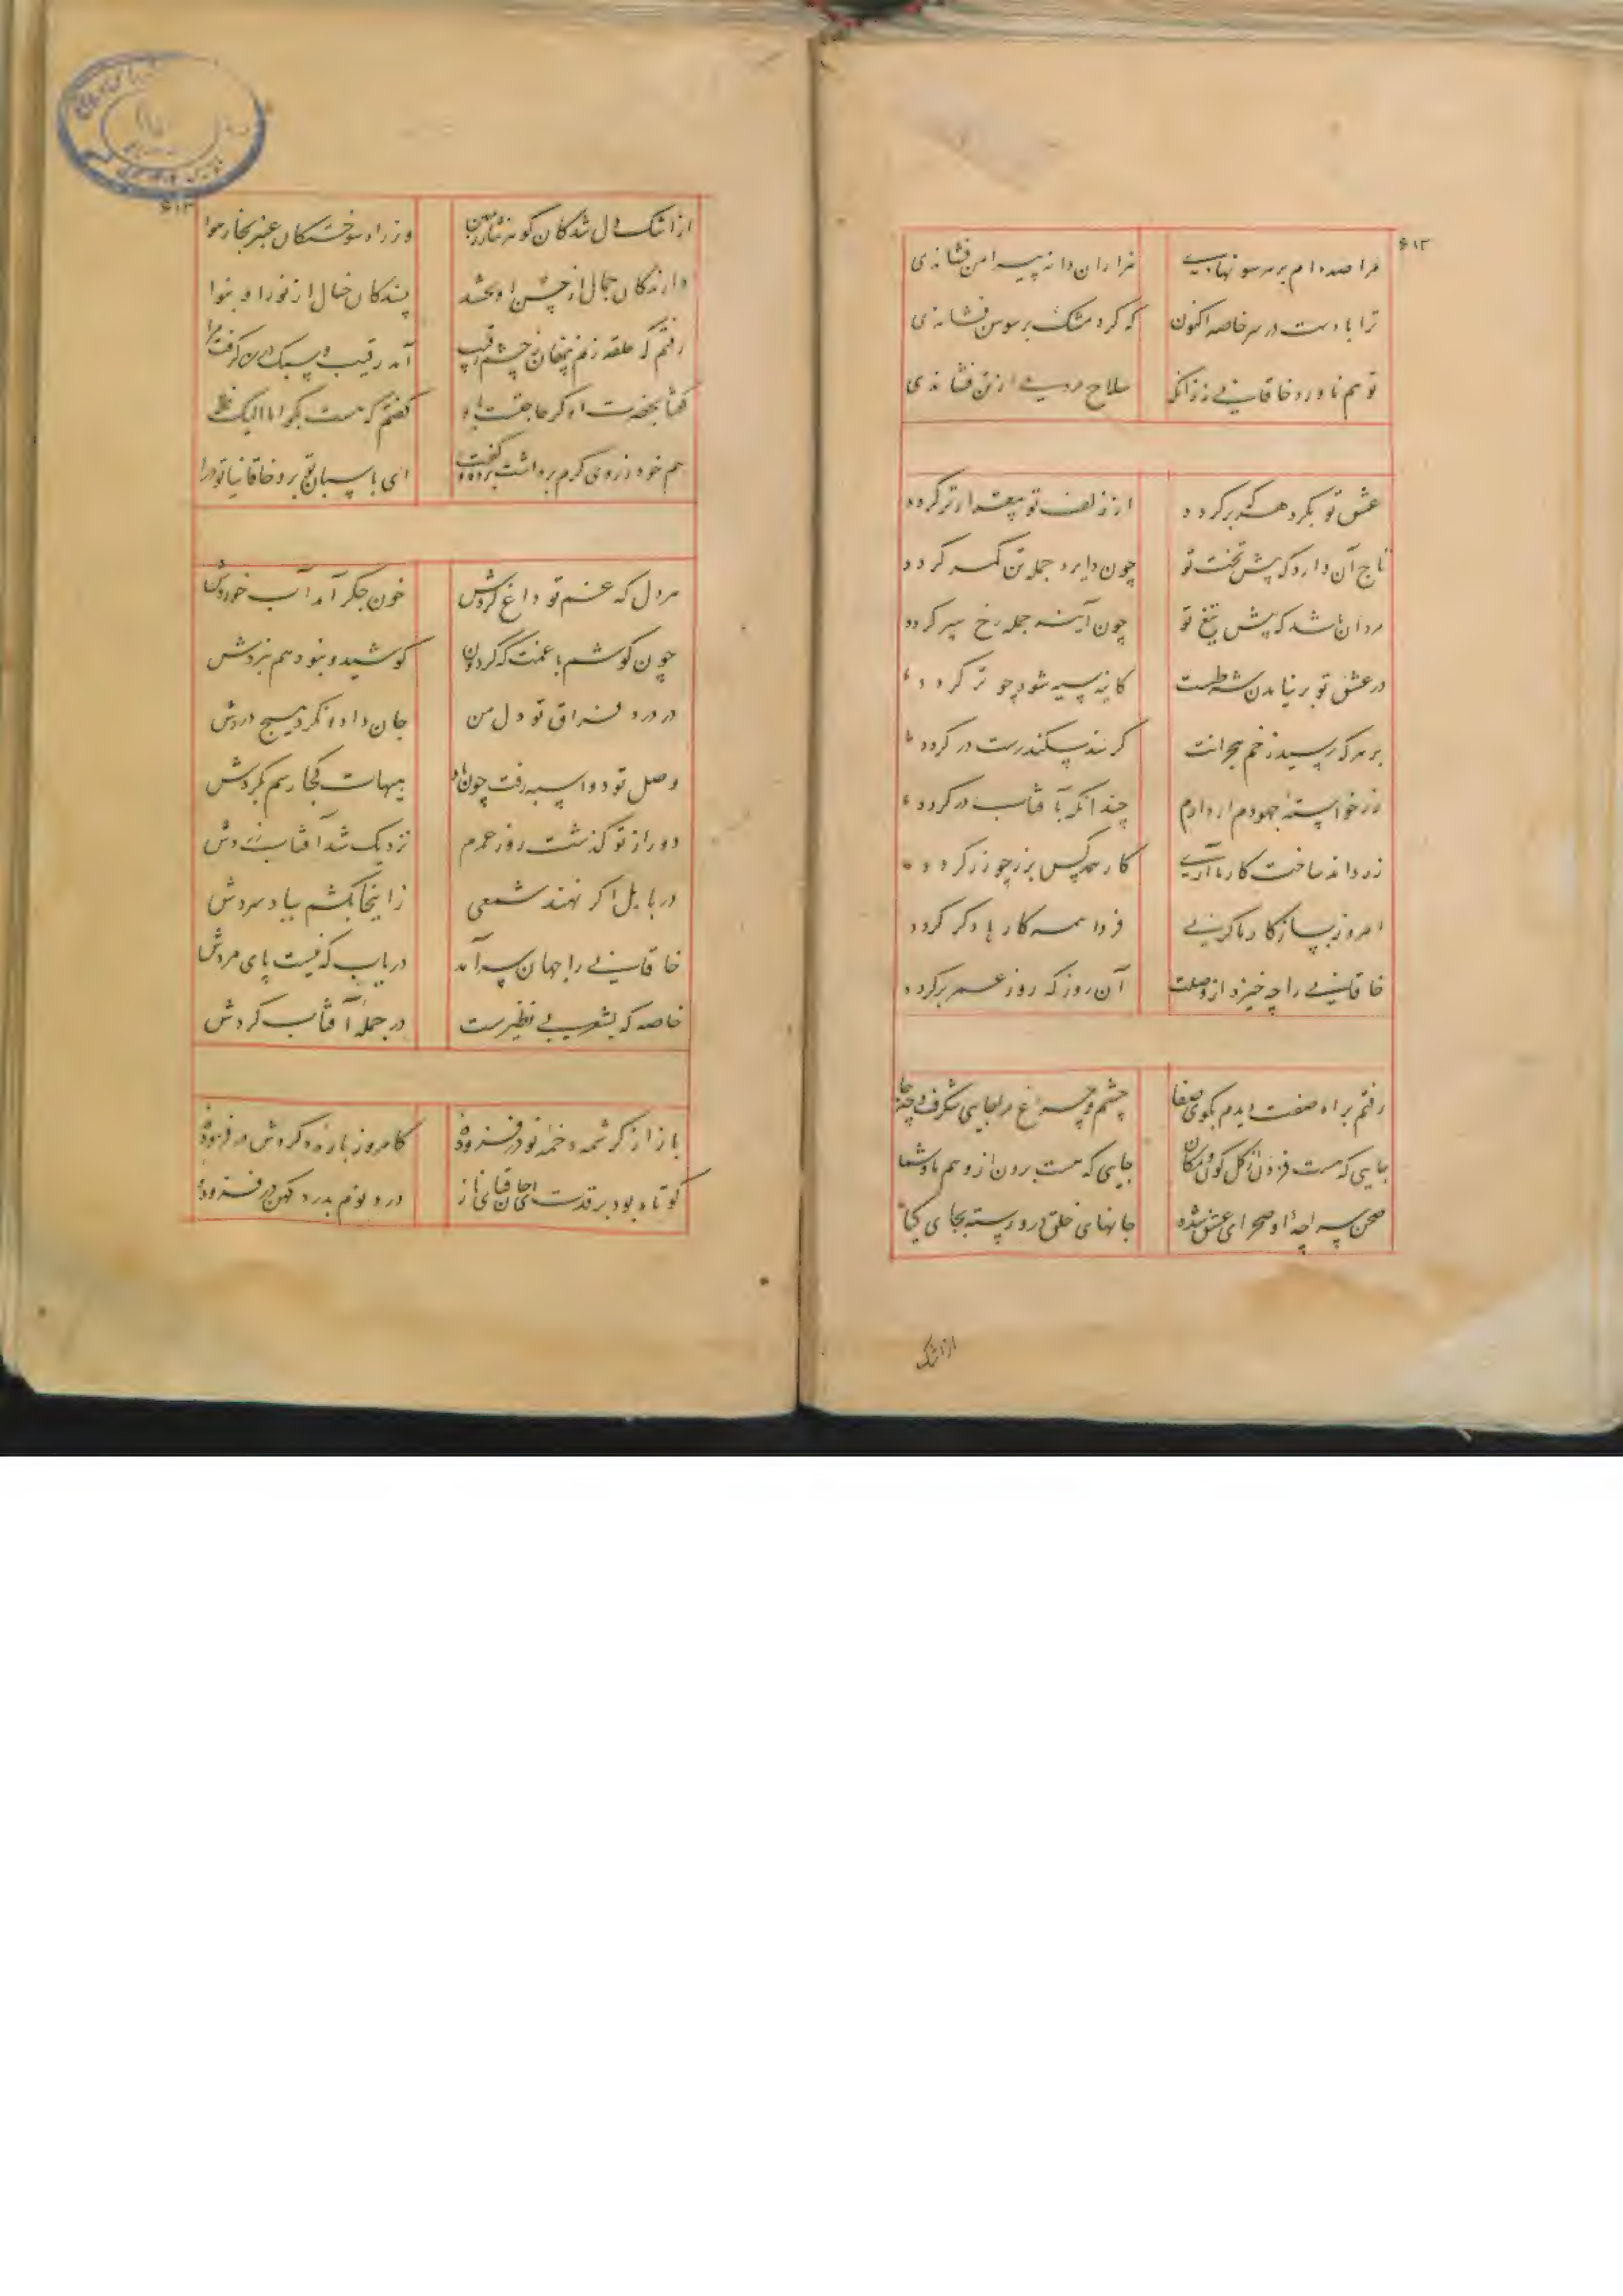 ۶۱۲
مرا صد دام بر هر سو نهادی هزاران دانه پیرامن فشاندی
ترا با دست در سر خاصه اکنون که گرد مشک بر سوسن فشاندی
تو هم ناورد خاقانی نه زانک سلاح مردمی از تن فشاندی
عشق تو بگرد هر که برگردد از زلف تو بیقرارتر گردد
تاج آن دارد که پیش تخت تو چون دایره جمله تن کمر گردد
مرد آن باشد که پیش تیغ تو چون آینه جمله رخ سپر گردد
در عشق تو بر نیامدن شرطست کاینه سیه شود چو تر گردد
بر هر که رسید زخم هجرانت گر سد سکندرست در گردد
زر خواسته جهودم ار دارم چندانکه بآفتاب در گردد
زر داند ساخت کار ما آری کار همه کس بزر چو زر گردد
امروز بساز کار ما گرنی فردا همه کارها دگر گردد
خاقانی را چه خیزد از وصلت آن روز که روز عمر برگردد
رفتم براه صفت دیدم بکوی صفا چشم و چراغ مرا جایی شگرف و چه جا
جایی که هست فزون از کل کون و مکان جایی که هست برون از وهم ما و شما
صحن سراچه او صحرای عشق شده جانهای خلق درو رسته بجای گیا
از اشک
۶۱۳
از اشک دل شدگان گوهر نثار زمین وز راه سوختگان عنبر بخار هوا
دارندگان جمال از حسن او بخشد بینندگان خیال از نور او بنوا
رفتم که حلقه زنم پنهان ز چشم رقیب آمد رقیب و سبک در من گرفت مرا
گفتا بحضرت ما گر حاجتست بگو گفتم که هست بگو اما الیک فلا
هم خود ز روی کرم برداشت پرده و گفت ای پاسبان تو برو خاقانیا تو درا
هر دل که غم تو داغ کردش خون جگر آمد آب خوردش
چون کوشم با غمت که گردون کوشید و نبود هم نبردش
در درد فراق تو دل من جان داد و نکرد هیچ دردش
وصل تو دو اسبه رفت چون باد هیهات کجا رسم بگردش
دور از تو گذشت روز عمرم نزدیک شد آفتاب زردش
در بابل اگر نهند شمعی زاینجا بکشم بباد سردش
خاقانی را جهان سر آمد دریاب که نیست پای مردش
خاصه که بشعر بی نظیرست در جمله آفتاب گردش
باز از کرشمه زخمه نو در فزوده کامروز بازده گردش
کوتاه بود بر قدت ای جان قبای ناز درد نوم بدرد کهن در فزوده